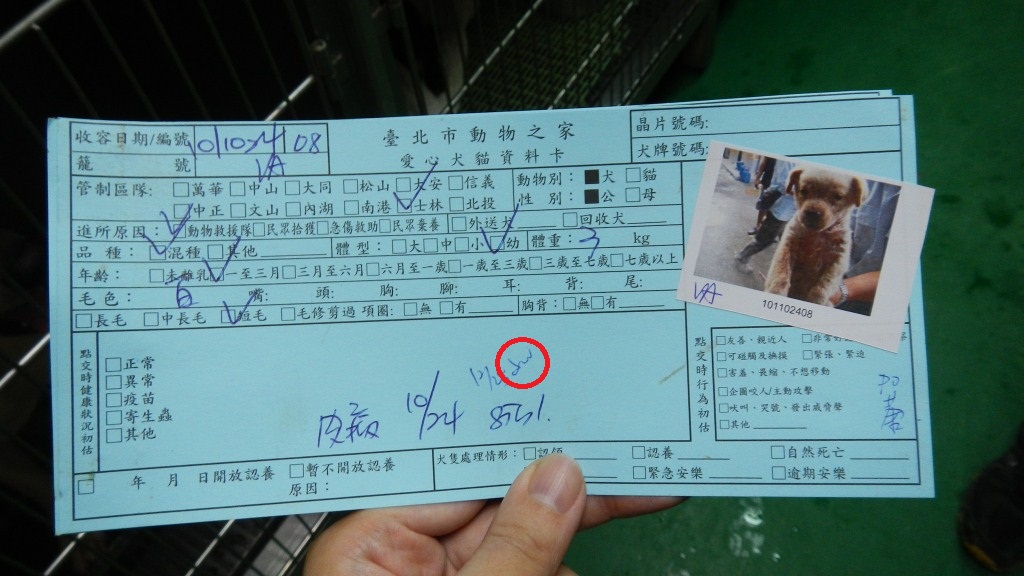 臺北市動物之家
愛心犬貓資料卡
收容日期/編號 08
籠號 VA
晶片號碼:
犬牌號碼:
管制區隊: □萬華□中山□大同 □松山□大安□信義
□中正□文山□內湖 □南港□士林□北投
動物別: ■犬 □貓
性別: ■公 □母
進所原因: □動物救援隊□民眾拾獲□急傷救助□民眾棄養 □外送犬 □回收犬
品種: □混種□其他 體型: □大□中□小□幼 體重: 3 kg
年齡: □未離乳□一至三月□三月至六月□六月至一歲□一歲至三歲□三歲至七歲□七歲以上
毛色: 嘴: 頭: 胸: 腳: 耳: 背: 尾:
□長毛 □中長毛 □短毛 □毛修剪過 項圈: □無 □有 胸背: □無□有
VA
101102408
點交時健康狀況初估
□正常
□異常
□疫苗
□寄生蟲
□其他
皮病 10/24
點交時行為初估
□友善、親近人
□可碰觸及撫摸 □緊張、緊迫
□害羞、畏縮、不想移動
□企圖咬人/主動攻擊
□吠叫、哭號、發出威脅聲
□其他
□ 年 月 日開放認養 □暫不開放認養
原因:
犬隻處理情形: □認領 □認養 □自然死亡
□緊急安樂 □逾期安樂